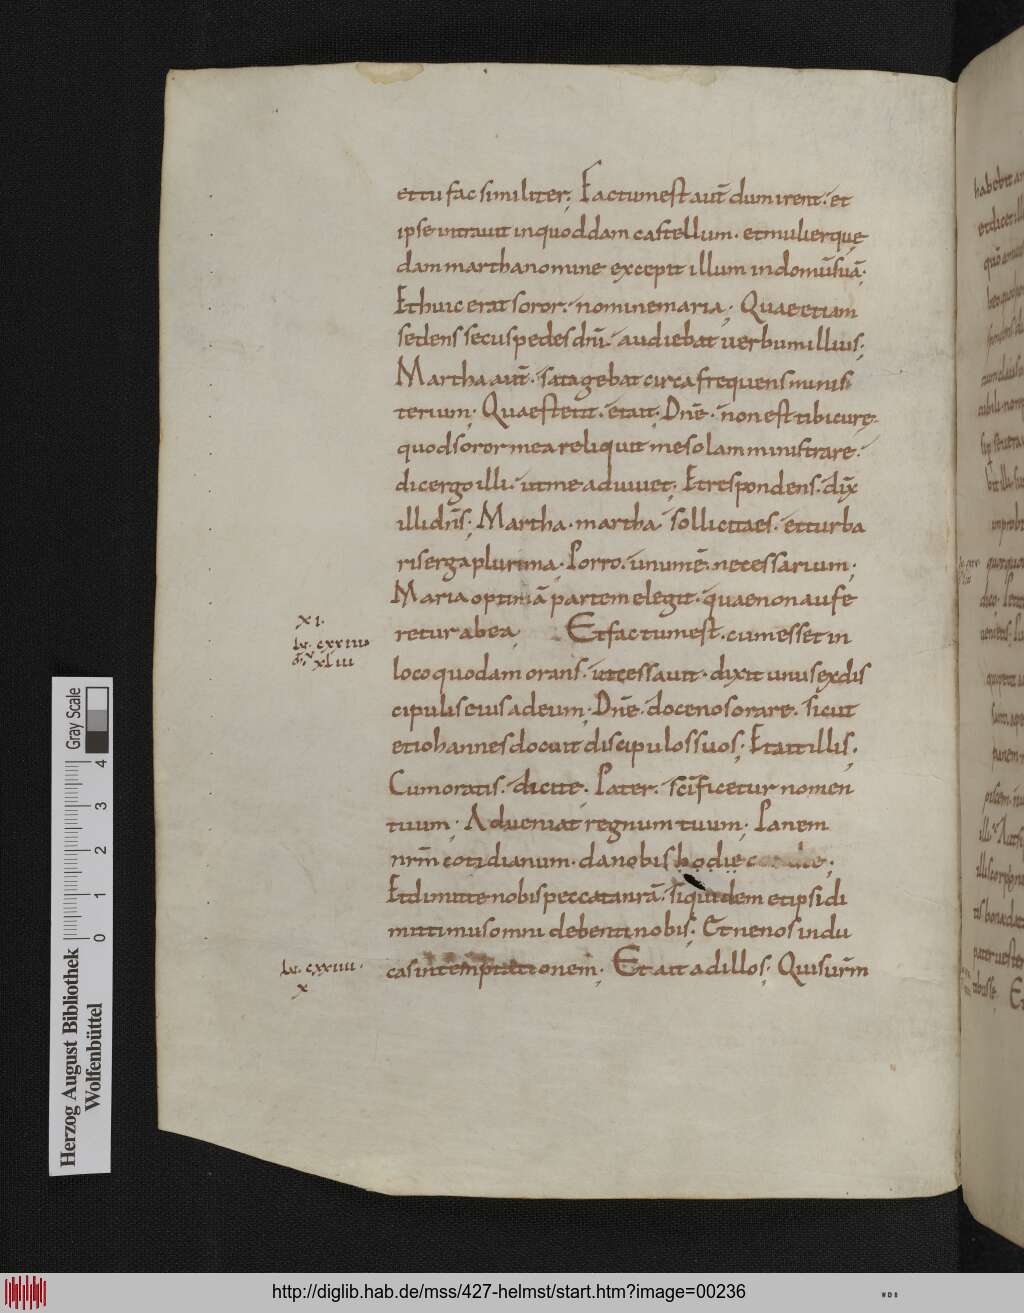 et tu fac similiter; Factum est aut̄ dum irent. et
ipse intrauit in quoddam castellum. et mulier quę
dam martha nomine excepit illum in domū suā;
Et huic erat soror. nomine maria; Quae etiam
sedens secus pedes dn̄i. audiebat uerbum illius;
Martha aut̄. satagebat circa frequens minis
terium; Quae stetit. et ait; Dn̄e. non est tibi curę.
quod soror mea reliquit me solam ministrare.
dic ergo illi. ut me adiuuet; Et respondens. dix̄
illi dn̄s; Martha. martha. sollicita es. et turba
ris erga plurima; Porro. unum ē. necessarium;
Maria optimā partem elegit. quae non aufe
retur ab ea; Et factum est. cum esset in
XI.
lu. cxxiii
m̄. xliii
loco quodam orans. ut cessauit. dixit unus ex dis
cipulis eius ad eum; Dn̄e. doce nos orare. sicut
et iohannes docuit discipulos suos; Et ait illis;
Cum oratis. dicite. Pater. sc̄ificetur nomen
tuum; Adueniat regnum tuum; Panem
nr̄m cotidianum. da nobis hodie
Et dimitte nobis peccata nr̄ā. siquidem et ipsi di
mittimus omni debenti nobis; Et ne nos indu
cas in temptationem; Et ait ad illos; Quis ur̄m
lu. cxxiiii.
x
habebit am
et dicet illi
Herzog August Bibliothek
Wolfenbüttel
Gray Scale
0 1 2 3 4
http://diglib.hab.de/mss/427-helmst/start.htm?image=00236